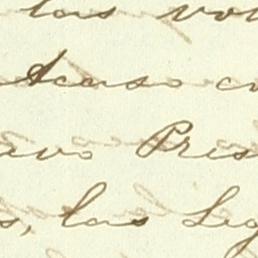 las vo
Acaso co
avo Pres
s, las Leg